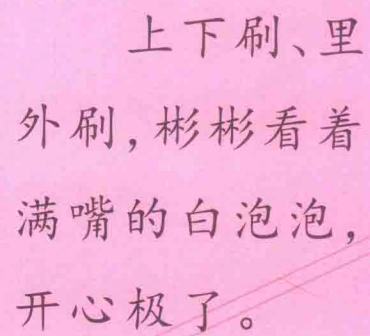 上下刷、里
外刷，彬彬看着
满嘴的白泡泡，
开心极了。